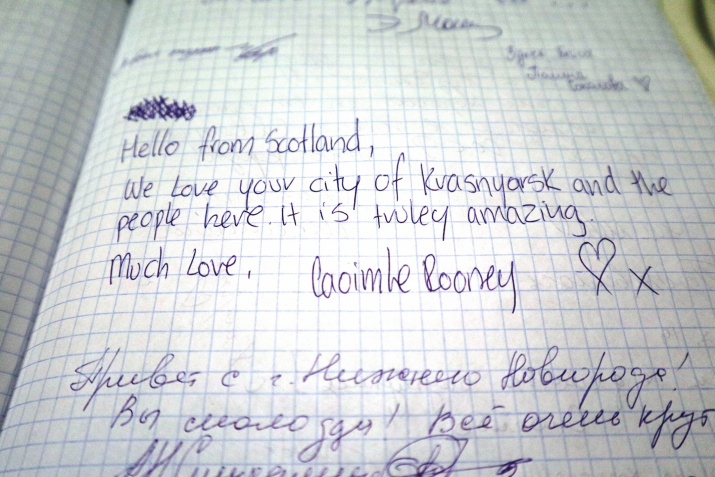 Здесь была
Полина
Hello from Scotland,
We Love your city of Krasnyarsk and the
people here. It is truley amazing.
Much Love, Caoimhe Rooney ♡ x
Привет с г. Нижнего Новгорода!
Вы молодцы! Всё очень круто